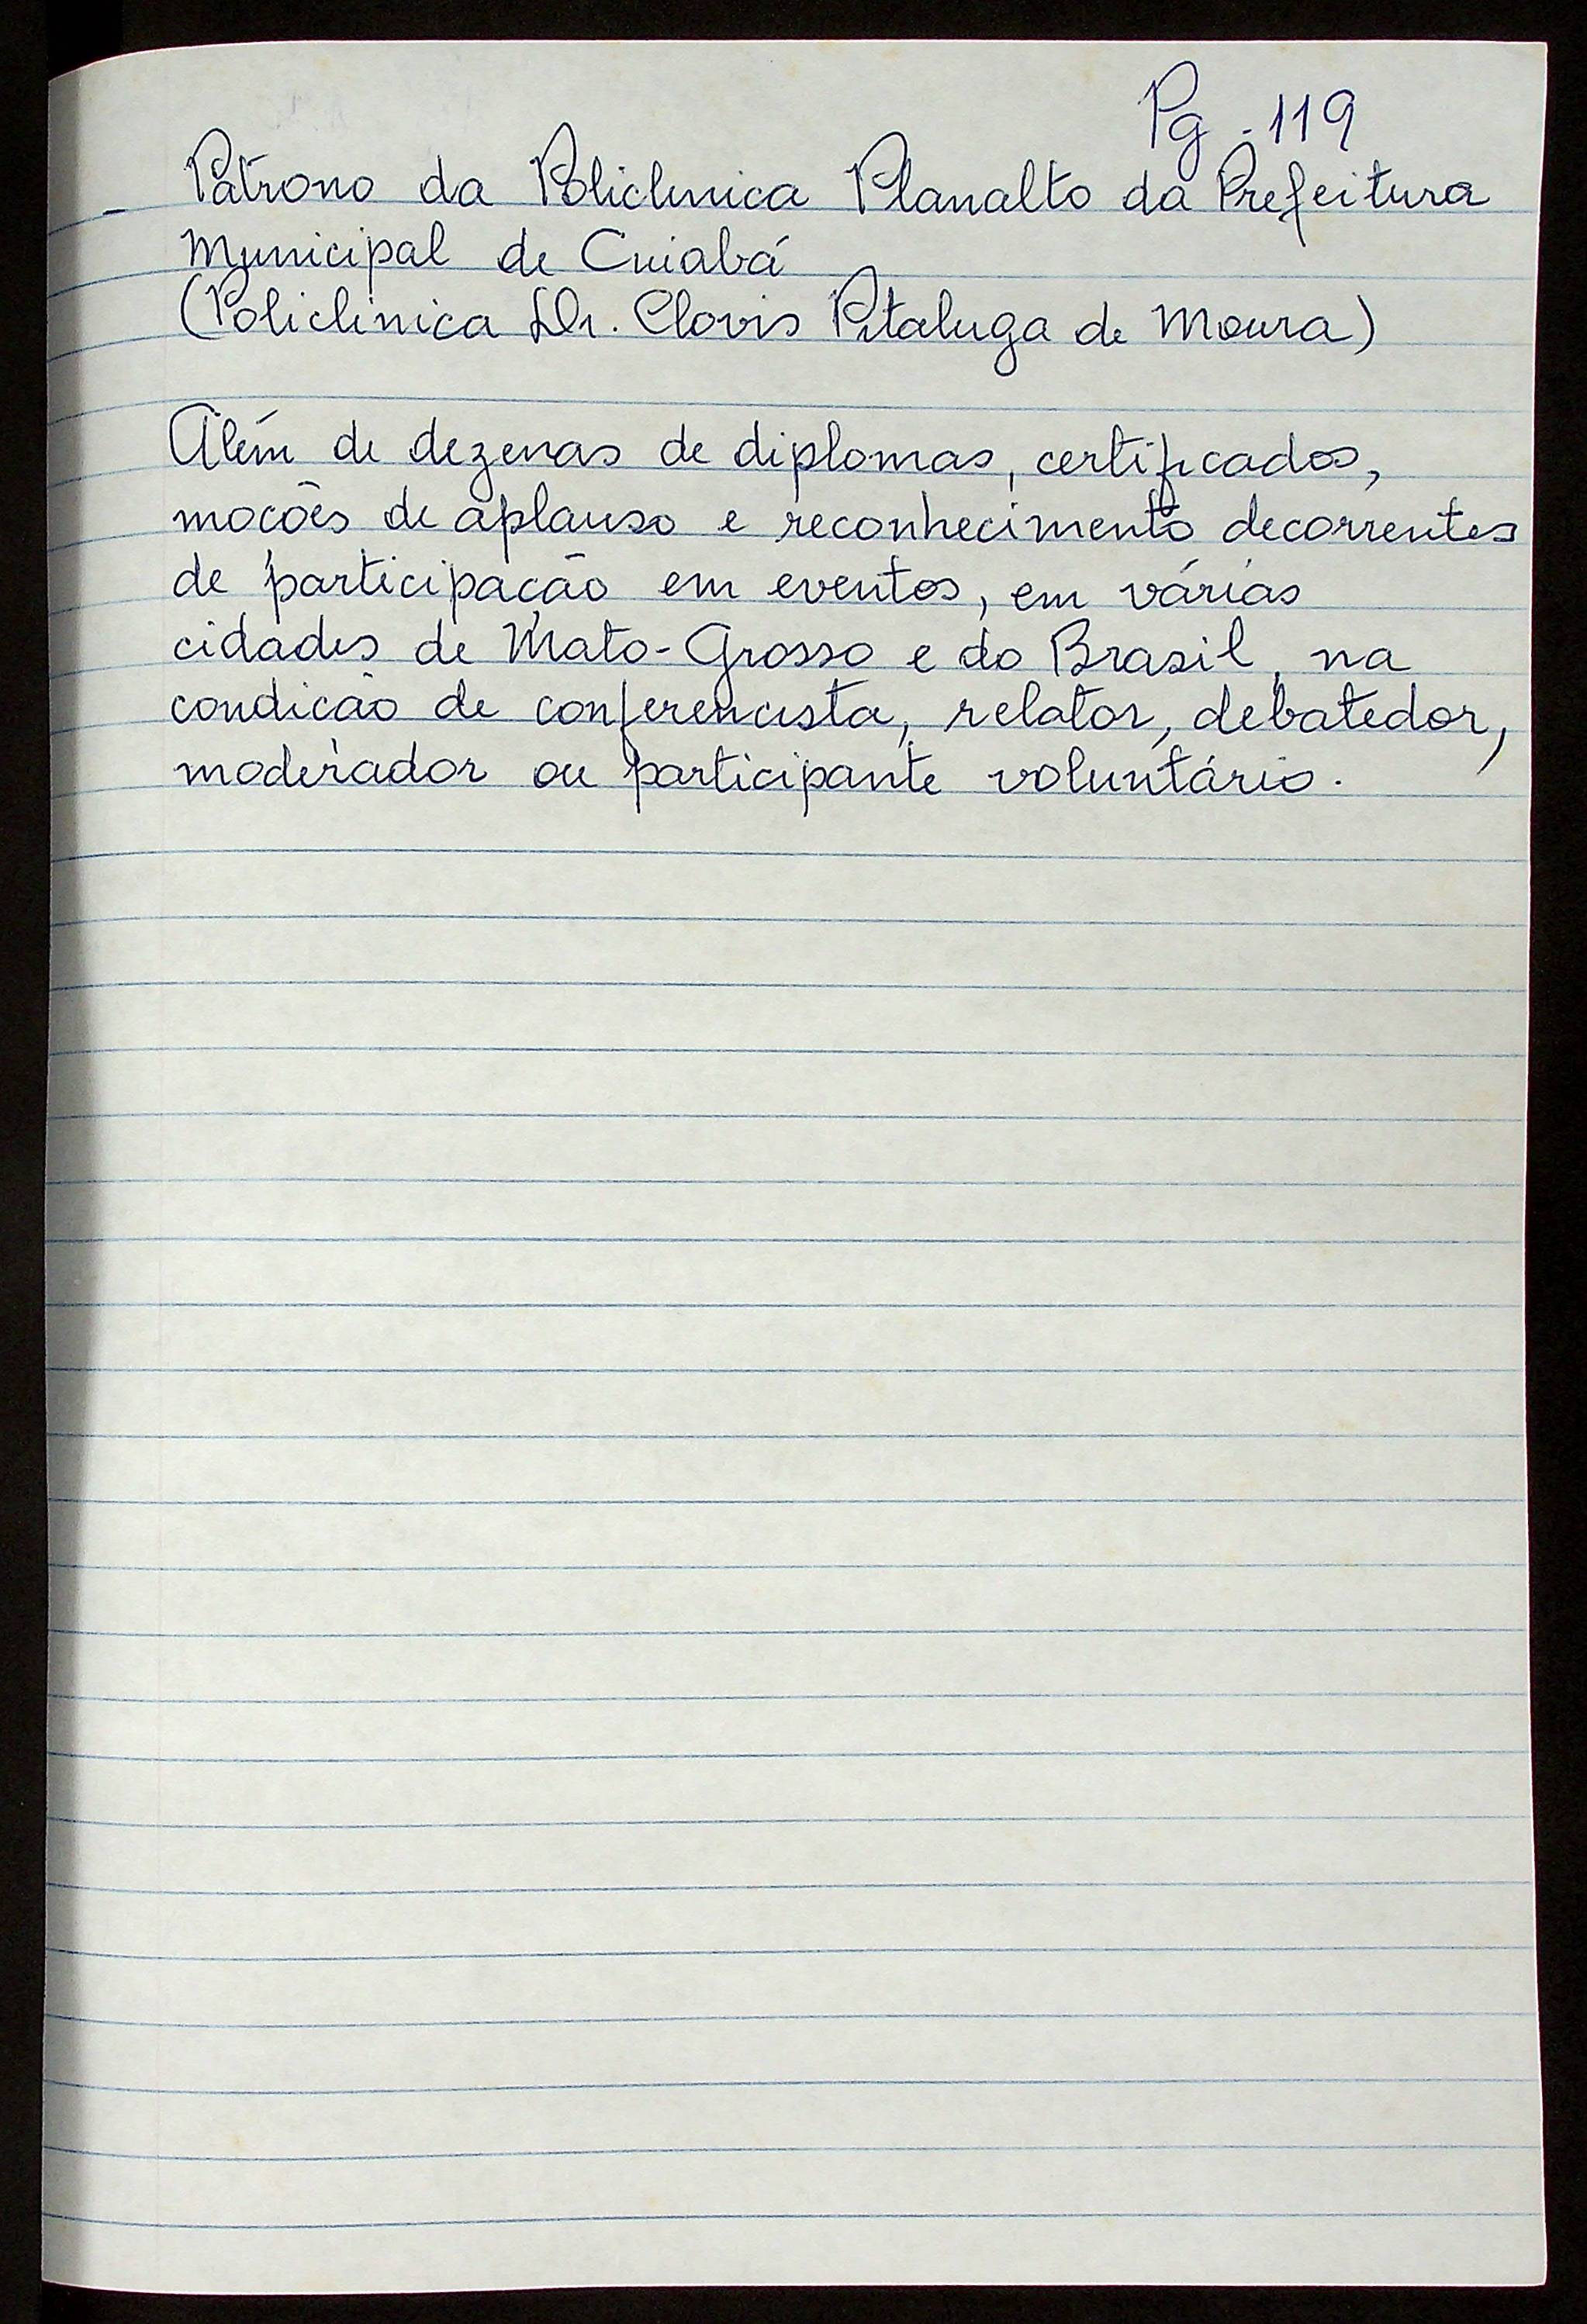 Pg. 119
- Patrono da Policlinica Planalto da Prefeitura
Municipal de Cuiabá
(Policlinica Dr. Clovis Pitaluga de Moura)
Além de dezenas de diplomas, certificados,
moções de aplauso e reconhecimento decorrentes
de participação em eventos, em várias
cidades de Mato-Grosso e do Brasil, na
condição de conferencista, relator, debatedor,
moderador ou participante voluntário.